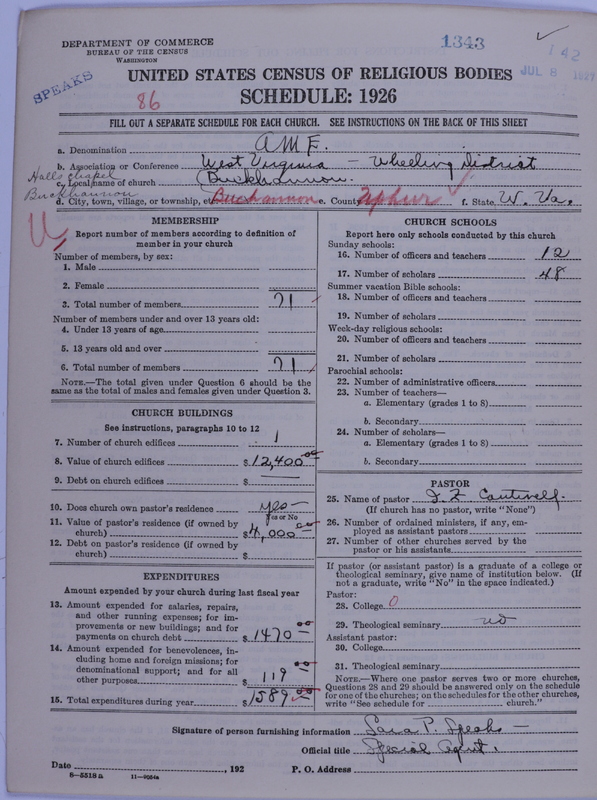 DEPARTMENT OF COMMERCE
BUREAU OF THE CENSUS
WASHINGTON
1343
142
JUL 8 1927
SPEAKS
86
UNITED STATES CENSUS OF RELIGIOUS BODIES
SCHEDULE: 1926
FILL OUT A SEPARATE SCHEDULE FOR EACH CHURCH. SEE INSTRUCTIONS ON THE BACK OF THIS SHEET
a. Denomination A.M.E.
b. Association or Conference West Virginia — Wheeling District
Halls Chapel
c. Local name of church Buckhannon.
Buckhannon
d. City, town, village, or township, etc. Buckhannon e. County Upshur f. State W. Va.
MEMBERSHIP
Report number of members according to definition of
member in your church
Number of members, by sex:
1. Male
2. Female
3. Total number of members 71
Number of members under and over 13 years old:
4. Under 13 years of age
5. 13 years old and over
6. Total number of members 71
NOTE.—The total given under Question 6 should be the
same as the total of males and females given under Question 3.
CHURCH BUILDINGS
See instructions, paragraphs 10 to 12
7. Number of church edifices 1
8. Value of church edifices $12,400.00
9. Debt on church edifices $ —
10. Does church own pastor's residence yes—
Yes or No
11. Value of pastor's residence (if owned by
church) $4,000.00
12. Debt on pastor's residence (if owned by
church) $
EXPENDITURES
Amount expended by your church during last fiscal year
13. Amount expended for salaries, repairs,
and other running expenses; for im-
provements or new buildings; and for
payments on church debt $1470.00
14. Amount expended for benevolences, in-
cluding home and foreign missions; for
denominational support; and for all
other purposes $119.00
15. Total expenditures during year $1589.00
CHURCH SCHOOLS
Report here only schools conducted by this church
Sunday schools:
16. Number of officers and teachers 12
17. Number of scholars 48
Summer vacation Bible schools:
18. Number of officers and teachers
19. Number of scholars
Week-day religious schools:
20. Number of officers and teachers
21. Number of scholars
Parochial schools:
22. Number of administrative officers
23. Number of teachers—
a. Elementary (grades 1 to 8)
b. Secondary
24. Number of scholars—
a. Elementary (grades 1 to 8)
b. Secondary
PASTOR
25. Name of pastor J. Z. Cantwell.
(If church has no pastor, write "None")
26. Number of ordained ministers, if any, em-
ployed as assistant pastors
27. Number of other churches served by the
pastor or his assistants
If pastor (or assistant pastor) is a graduate of a college or
theological seminary, give name of institution below. (If
not a graduate, write "No" in the space indicated.)
Pastor:
28. College 0
29. Theological seminary no
Assistant pastor:
30. College
31. Theological seminary
NOTE.—Where one pastor serves two or more churches,
Questions 28 and 29 should be answered only on the schedule
for one of the churches; on the schedules for the other churches,
write "See schedule for church."
Signature of person furnishing information Sara P. Speaks—
Official title Special Agent.
Date , 192 P. O. Address
8—5518 a 11—9054a